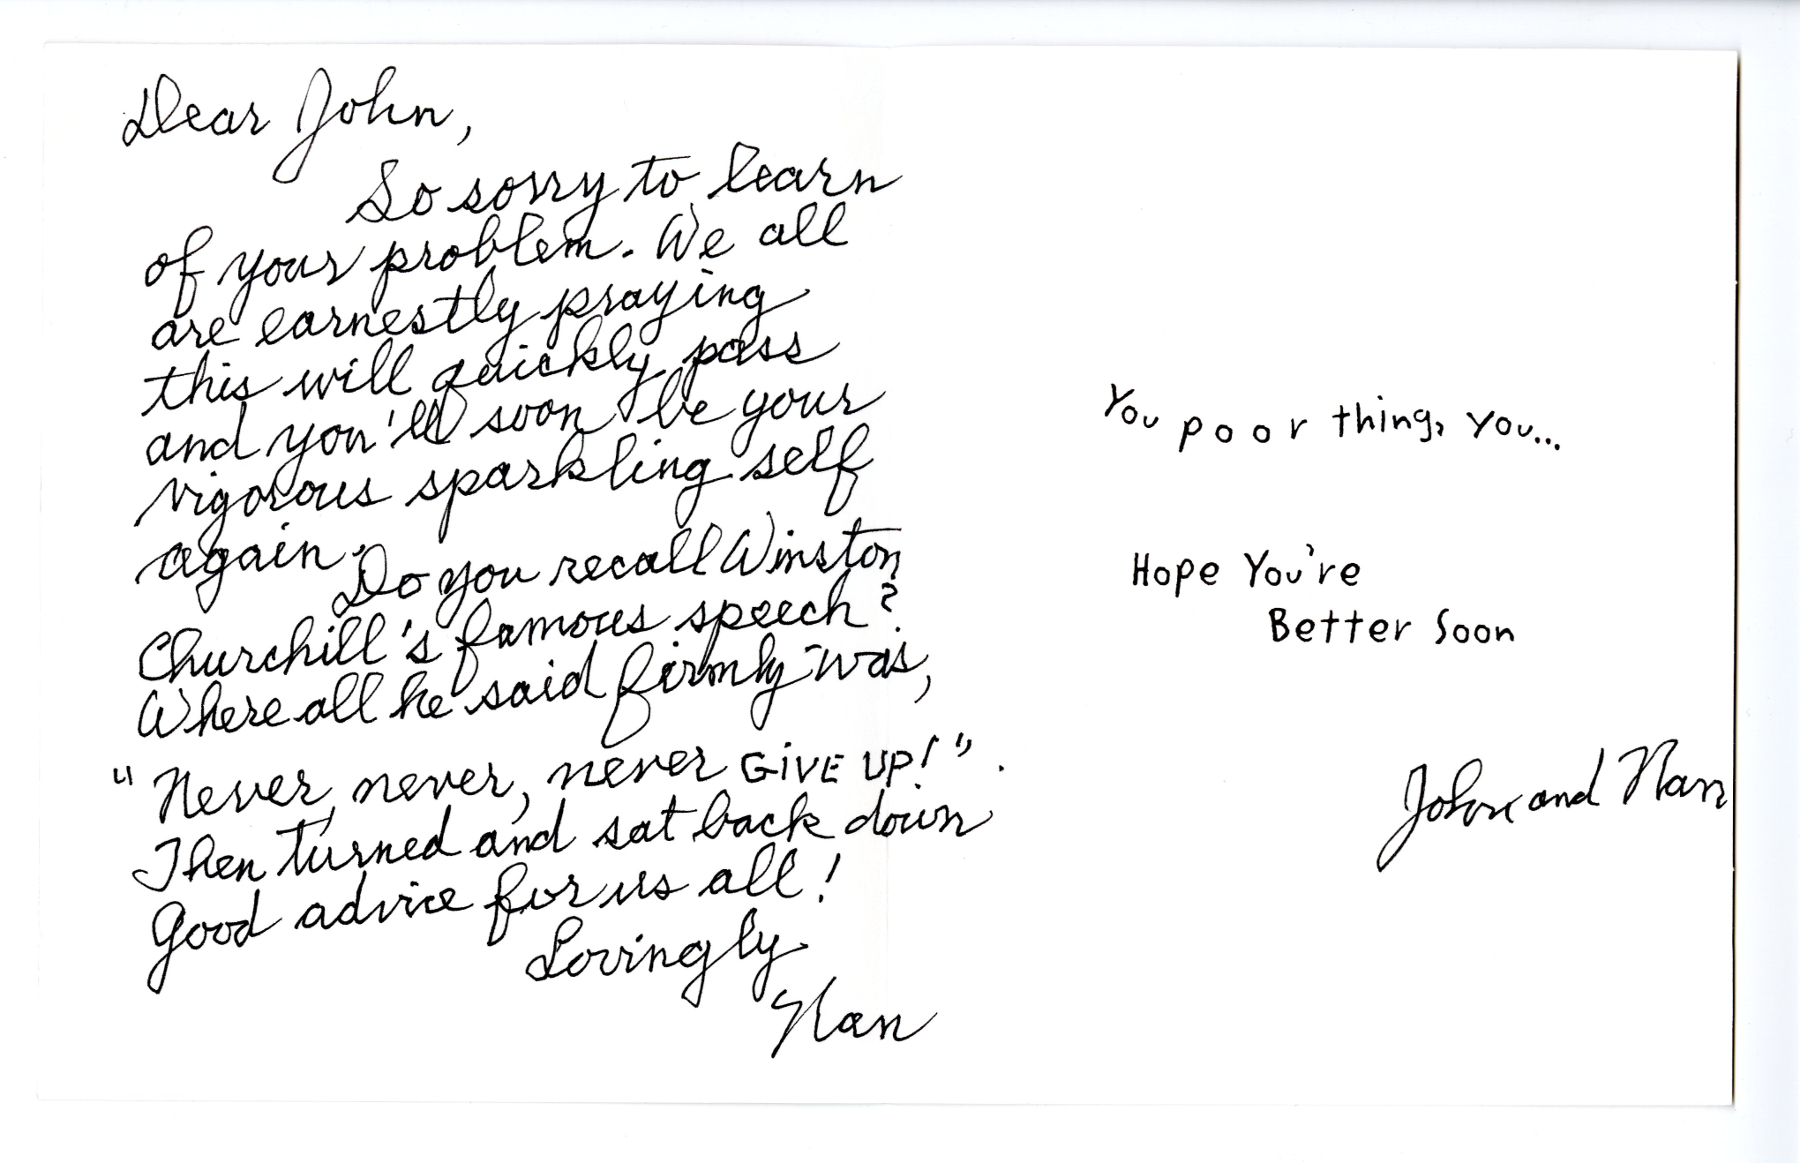 Dear John,
So sorry to learn
of your problem. We all
are earnestly praying
this will quickly pass
and you'll soon be your
vigorous sparkling self
again.
Do you recall Winston
Churchill's famous speech?
Where all he said firmly was,
"Never, never, never GIVE UP!".
Then turned and sat back down
Good advice for us all!
Lovingly
Nan
You poor thing, you...
Hope You're
Better Soon
John and Nan